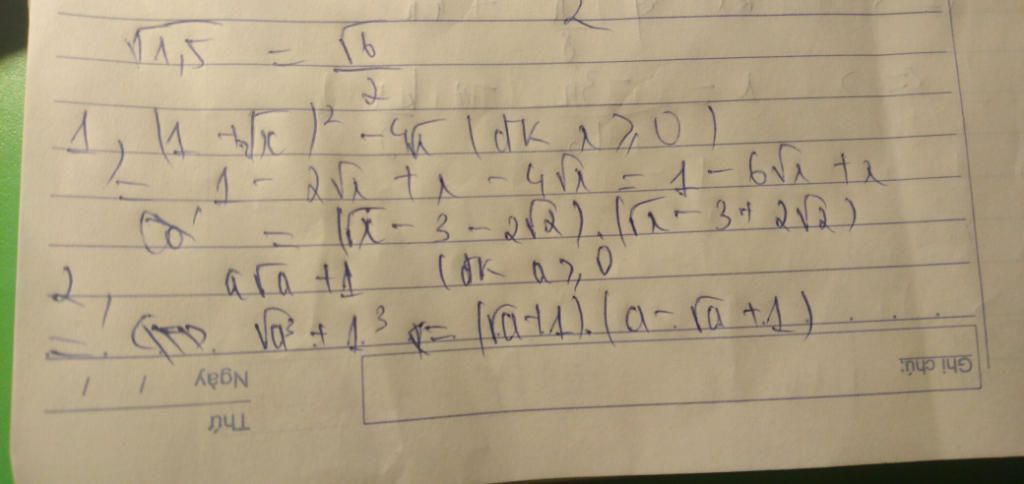 √1,5 = √6/2
1, (1 + √x)² - 4√x (đk x ≥ 0)
= 1 - 2√x + x - 4√x = 1 - 6√x + x
= (√x - 3 - 2√2).(√x - 3 + 2√2)
2, a√a + 1 (đk a ≥ 0
= √a³ + 1³ = (√a + 1).(a - √a + 1)
Ghi chú:
Ngày / /
Thứ